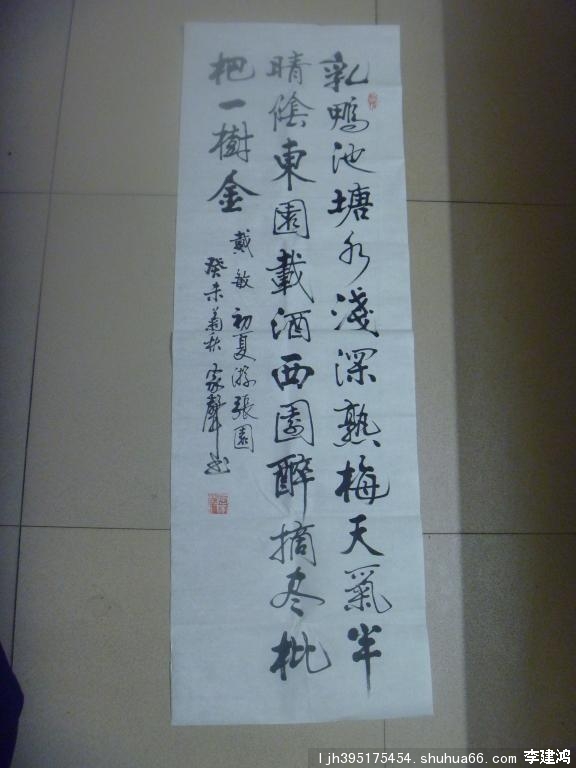 乳鴨池塘水淺深熟梅天氣半
晴陰東園載酒西園醉摘尽枇
杷一樹金
戴敏初夏游張園
癸未菊秋家聲书
ljh395175454.shuhua66.com 李建鸿